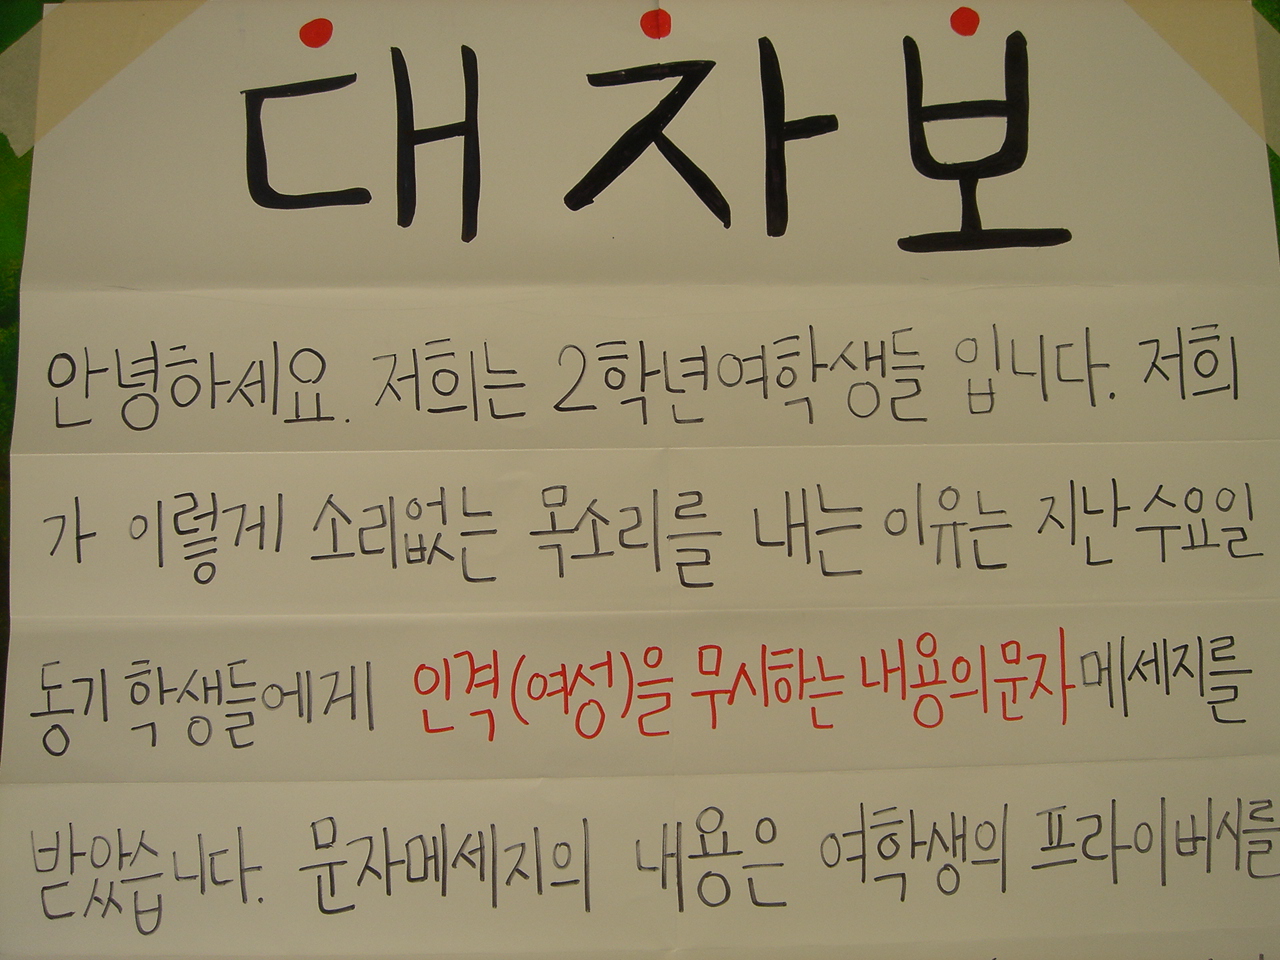 대자보
안녕하세요. 저희는 2학년여학생들 입니다. 저희
가 이렇게 소리없는 목소리를 내는 이유는 지난 수요일
동기 학생들에게 인격(여성)을 무시하는 내용의 문자 메세지를
받았습니다. 문자메세지의 내용은 여학생의 프라이버시를